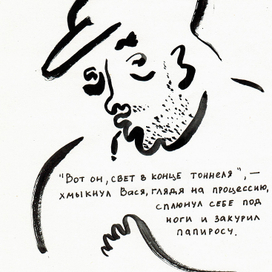 "Вот он, свет в конце тоннеля", —
хмыкнул Вася, глядя на процессию,
сплюнул себе под
ноги и закурил
папиросу.